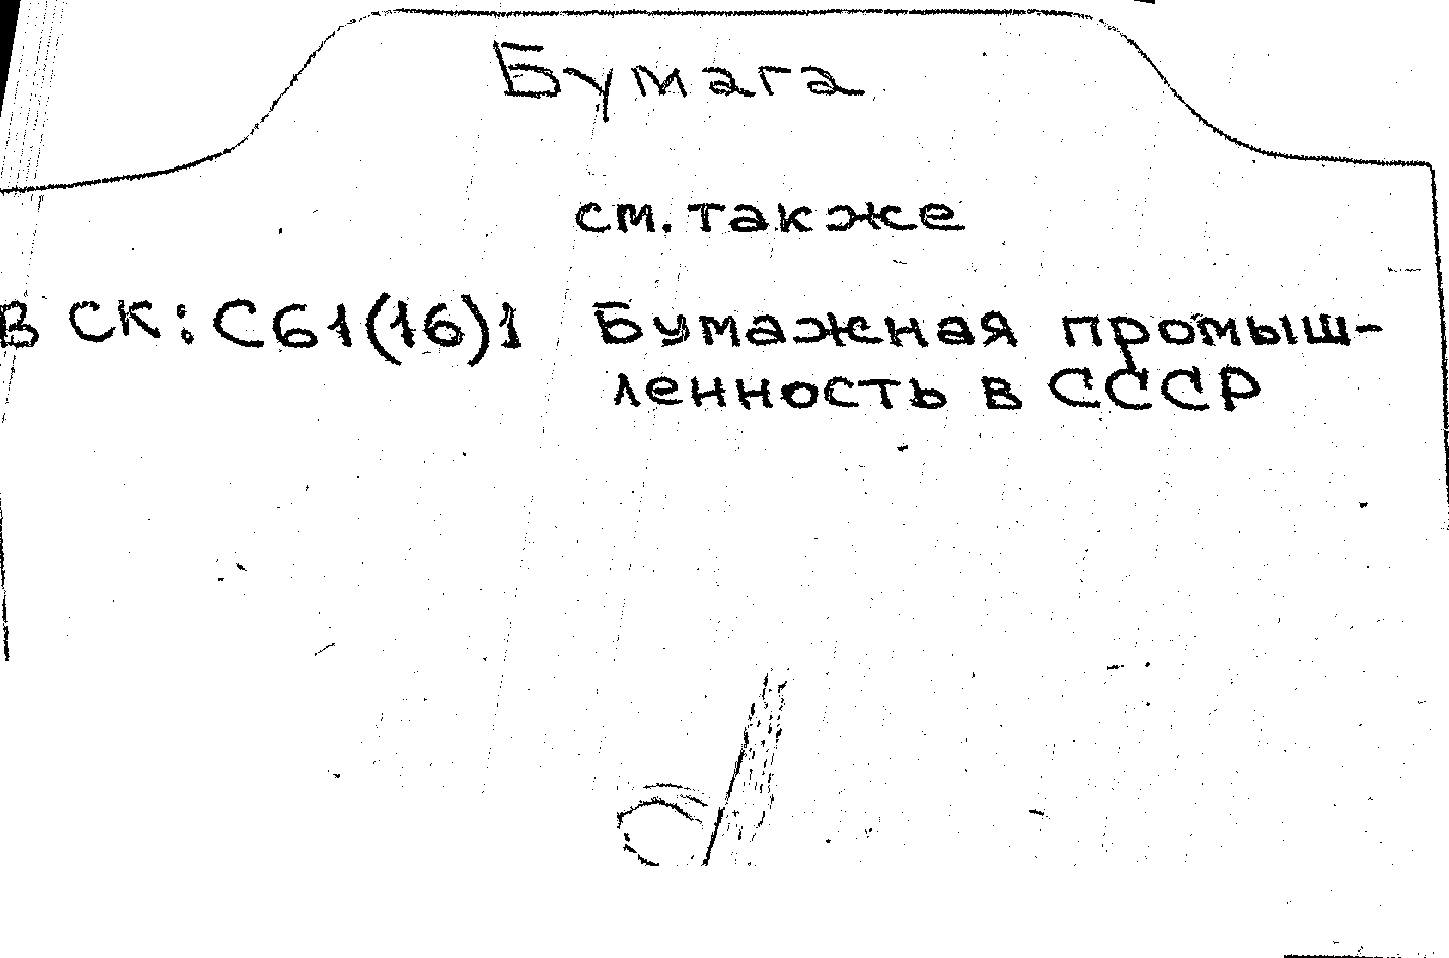 Бумага
см. также
В СК: С61(16)1 Бумажная промыш-
ленность в СССР